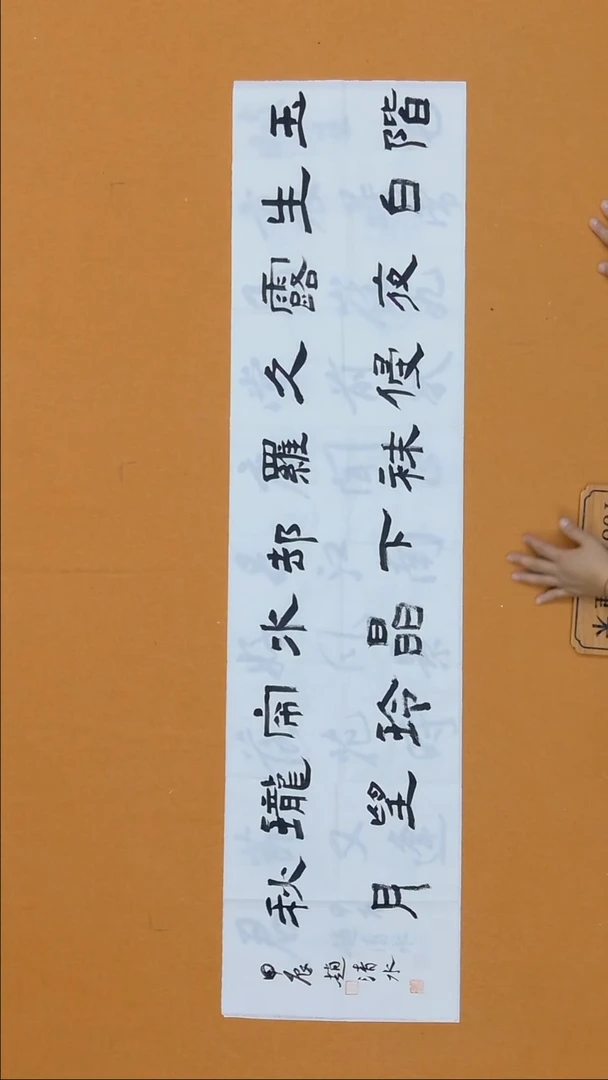 玉階
生白
露夜
久侵
羅袜
却下
水晶
帘玲
瓏望
秋月
甲辰趙清水